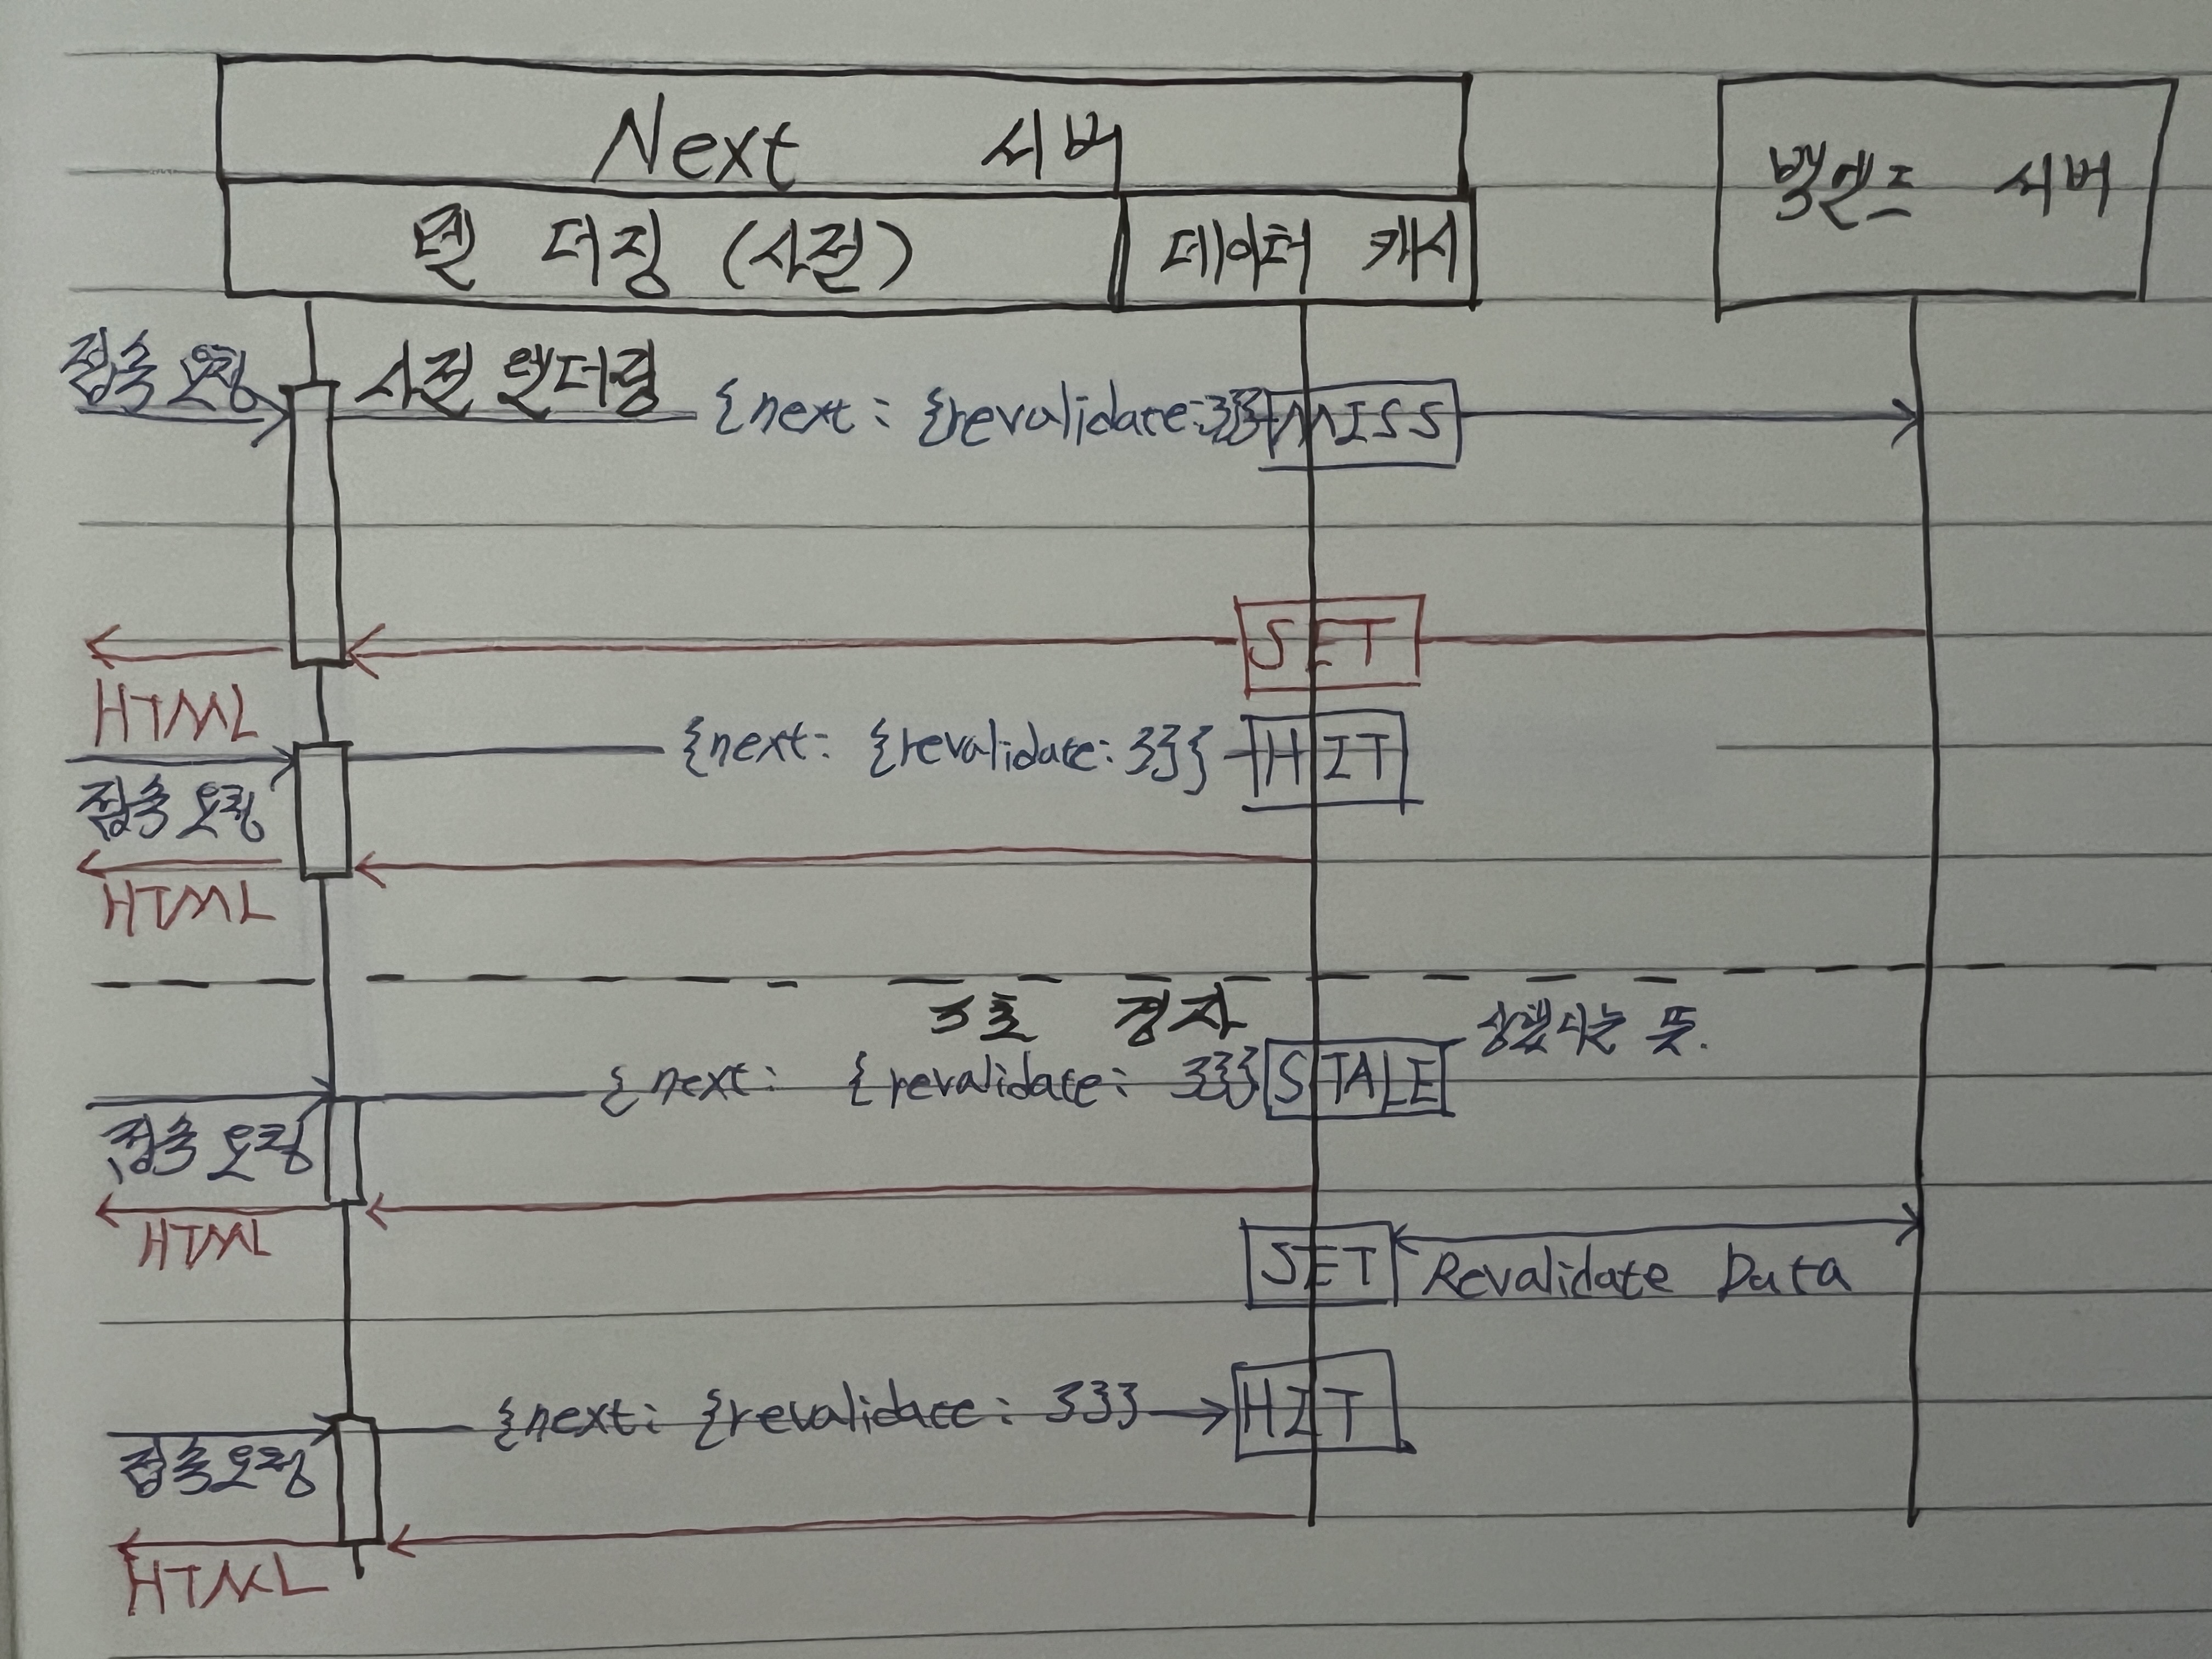 Next 서버
백엔드 서버
렌더징 (사전)
데이터 캐시
접속 요청
사전 렌더링
{next: {revalidate:3}}
MISS
SET
HTML
{next: {revalidate: 3}}
HIT
접속 요청
HTML
3초 경과
상했다는 뜻.
{next: {revalidate: 3}}
STALE
접속 요청
HTML
SET
Revalidate Data
{next: {revalidate: 3}}
HIT
접속 요청
HTML